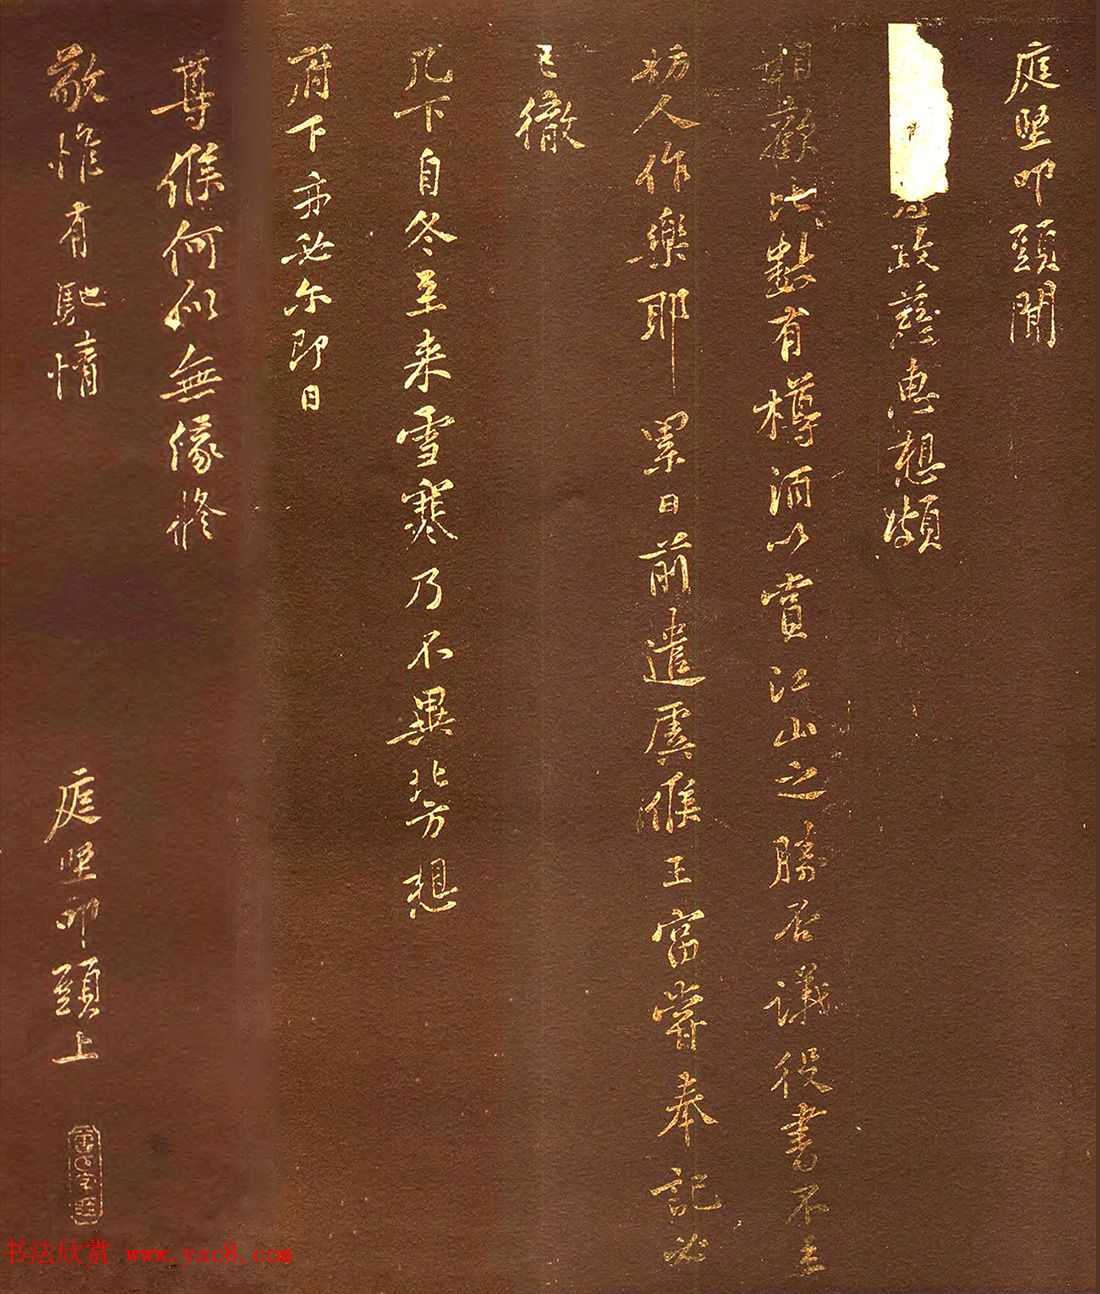 庭堅叩頭聞
為政慈惠想頗
相歡比數有樽酒以賞江山之勝否議役書不至
妨人作樂耶累日前遣虞候王富嘗奉記必
已徹
几下自冬至来雪寒乃不異北方想
府下亦必尔即日
尊候何似無緣修
敬惟有馳情
庭堅叩頭上
书法欣赏 www.yac8.com